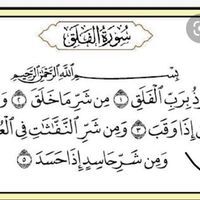 سُورَةُ الْفَلَقِ
بِسْمِ اللَّهِ الرَّحْمَٰنِ الرَّحِيمِ
بِرَبِّ الْفَلَقِ ١ مِن شَرِّ مَا خَلَقَ ٢
إِذَا وَقَبَ ٣ وَمِن شَرِّ النَّفَّٰثَٰتِ فِي
وَمِن شَرِّ حَاسِدٍ إِذَا حَسَدَ ٥